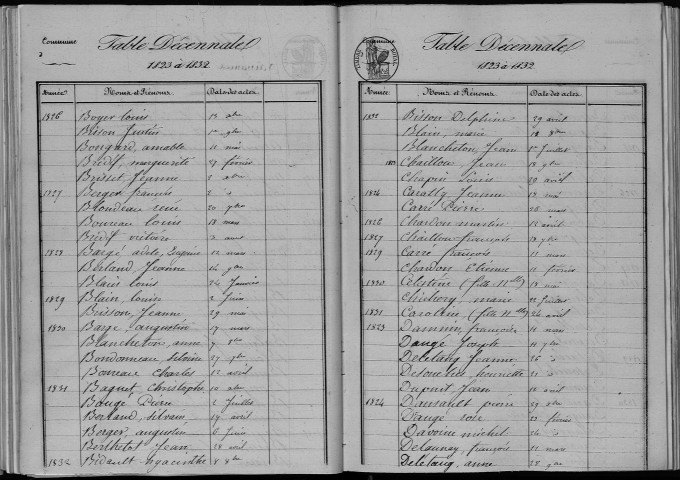 Commune
Table Décennale
1823 à 1832
Année Noms et Prénoms Dates des actes
1826 Boyer louis 13 xbre
Bisson Justin 1er 9bre
Bongard, amable 11 mai
Bredif, marguerite 27 février
Brisset Jeanne 2 xbre
1827 Berger francois 2 d
Blondeau rené 20 9bre
Bonneau louis 18 mars
Brédif victoire 3 aout
1828 Bargé adele, Eugénie 12 mars
Berland Jeanne 14 9bre
Blais louis 24 Janvier
1829 Blain, louise 2 Juin
Brisson, Jeanne 29 mai
1830 Barge augustin 17 mars
Blancheton, anne 7 9bre
Bondonneau silvine 27 9bre
Bonneau charles 12 avril
1831 Baquet christophe 10 xbre
Baugé Pierre 2 Juillet
Berland, silvain 19 avril
Berger, augustin 6 Juin
Berthelot Jean 28 avril
1832 Bidault hyacinthe 8 8bre
Commune
Table Décennale
1823 à 1832
Année Noms et Prénoms Dates des actes
1832 Bisson Delphine 29 avril
Blain, marie 18 8bre
Blancheton, Jean 1er Juillet
1823 Chaillou Jean 18 9bre
Chapin Louis 29 avril
1824 Caratly Jeanne 18 mai
Carré Pierre 28 mars
1826 Chardon martin 15 avril
1827 Chaillou françois 18 9bre
1829 Carré françois 11 mars
Chardon Etienne 11 février
1830 Célestine (fille Nlle) 18 mai
Chichery, marie 12 Juillet
1831 Caroline (fille Nlle) 24 avril
1823 Dammin, françois 11 mars
Daugé Joseph 11 9bre
Deletang Jeanne 26 d
Desourties, hennette 21 d
Dupuit Jean 18 avril
1824 Dansault pierre 29 9bre
Daugé rose 22 février
Davoine michel 24 d
Delaunay, françois 11 mars
Deletang, anne 28 9bre